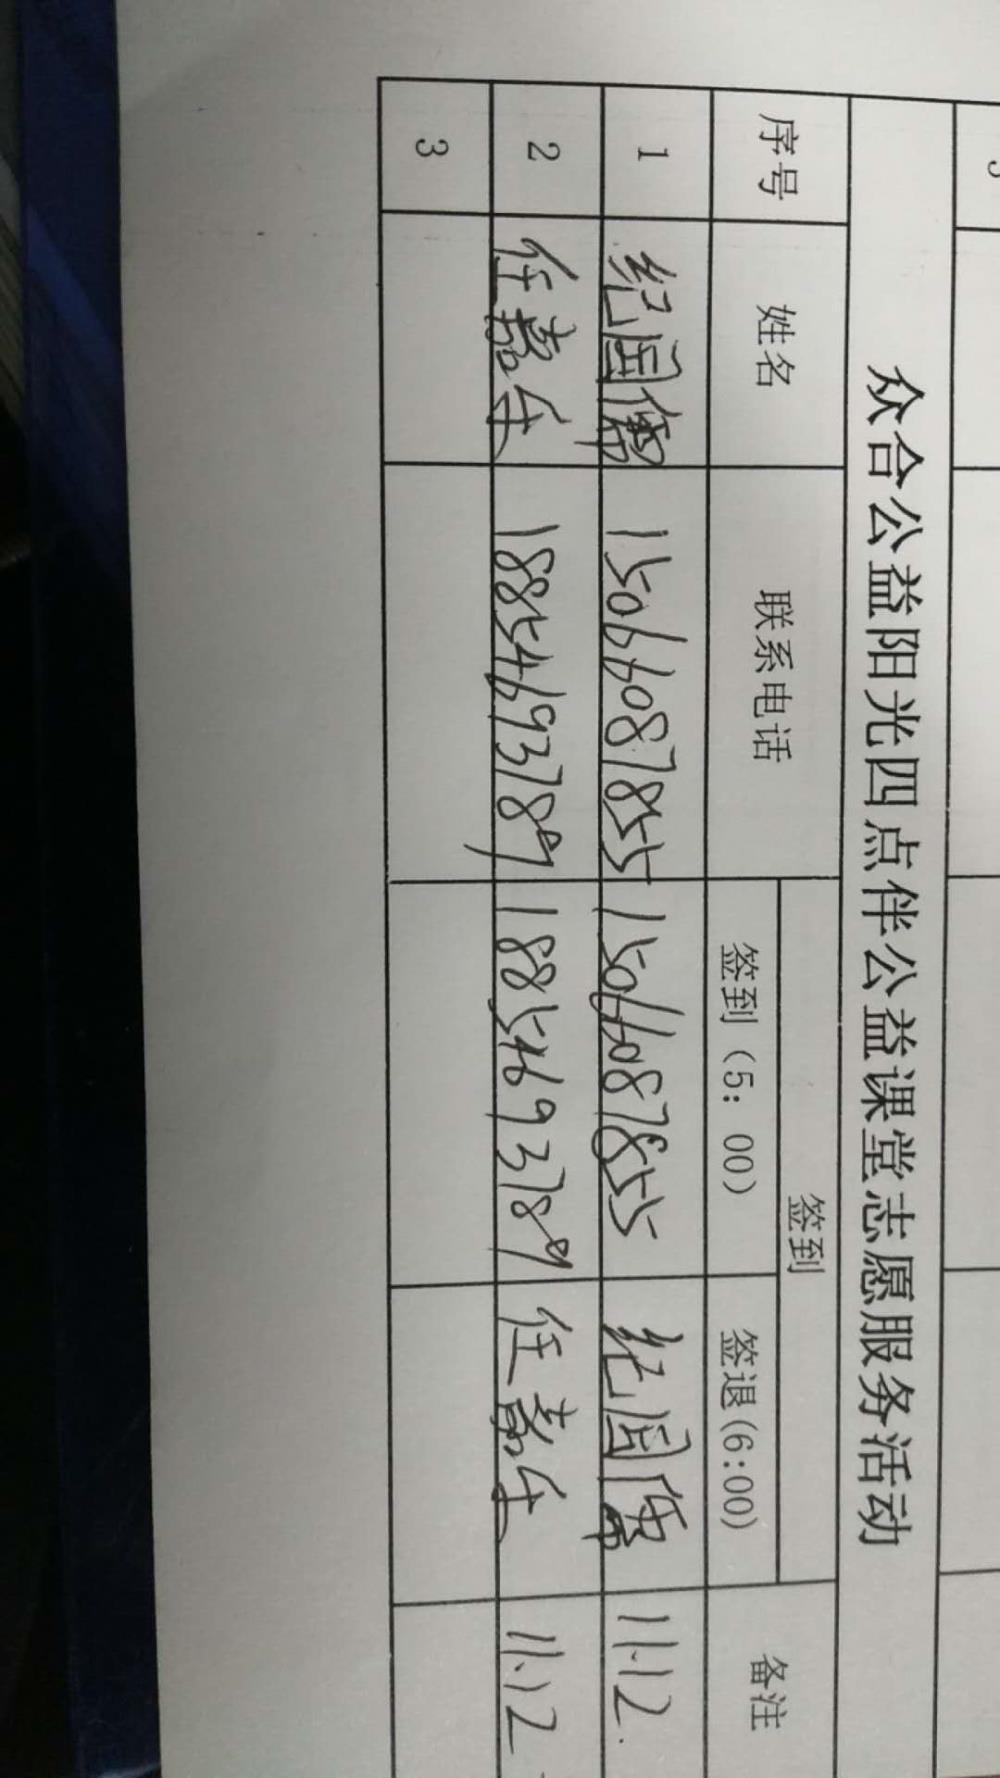 众合公益阳光四点伴公益课堂志愿服务活动
序号 姓名 联系电话 签到 备注
签到（5：00） 签退(6:00)
1 纪国儒 15066087855 15066087855 纪国儒 11.12.
2 任嘉乐 18854693789 18854693789 任嘉乐 11.12
3